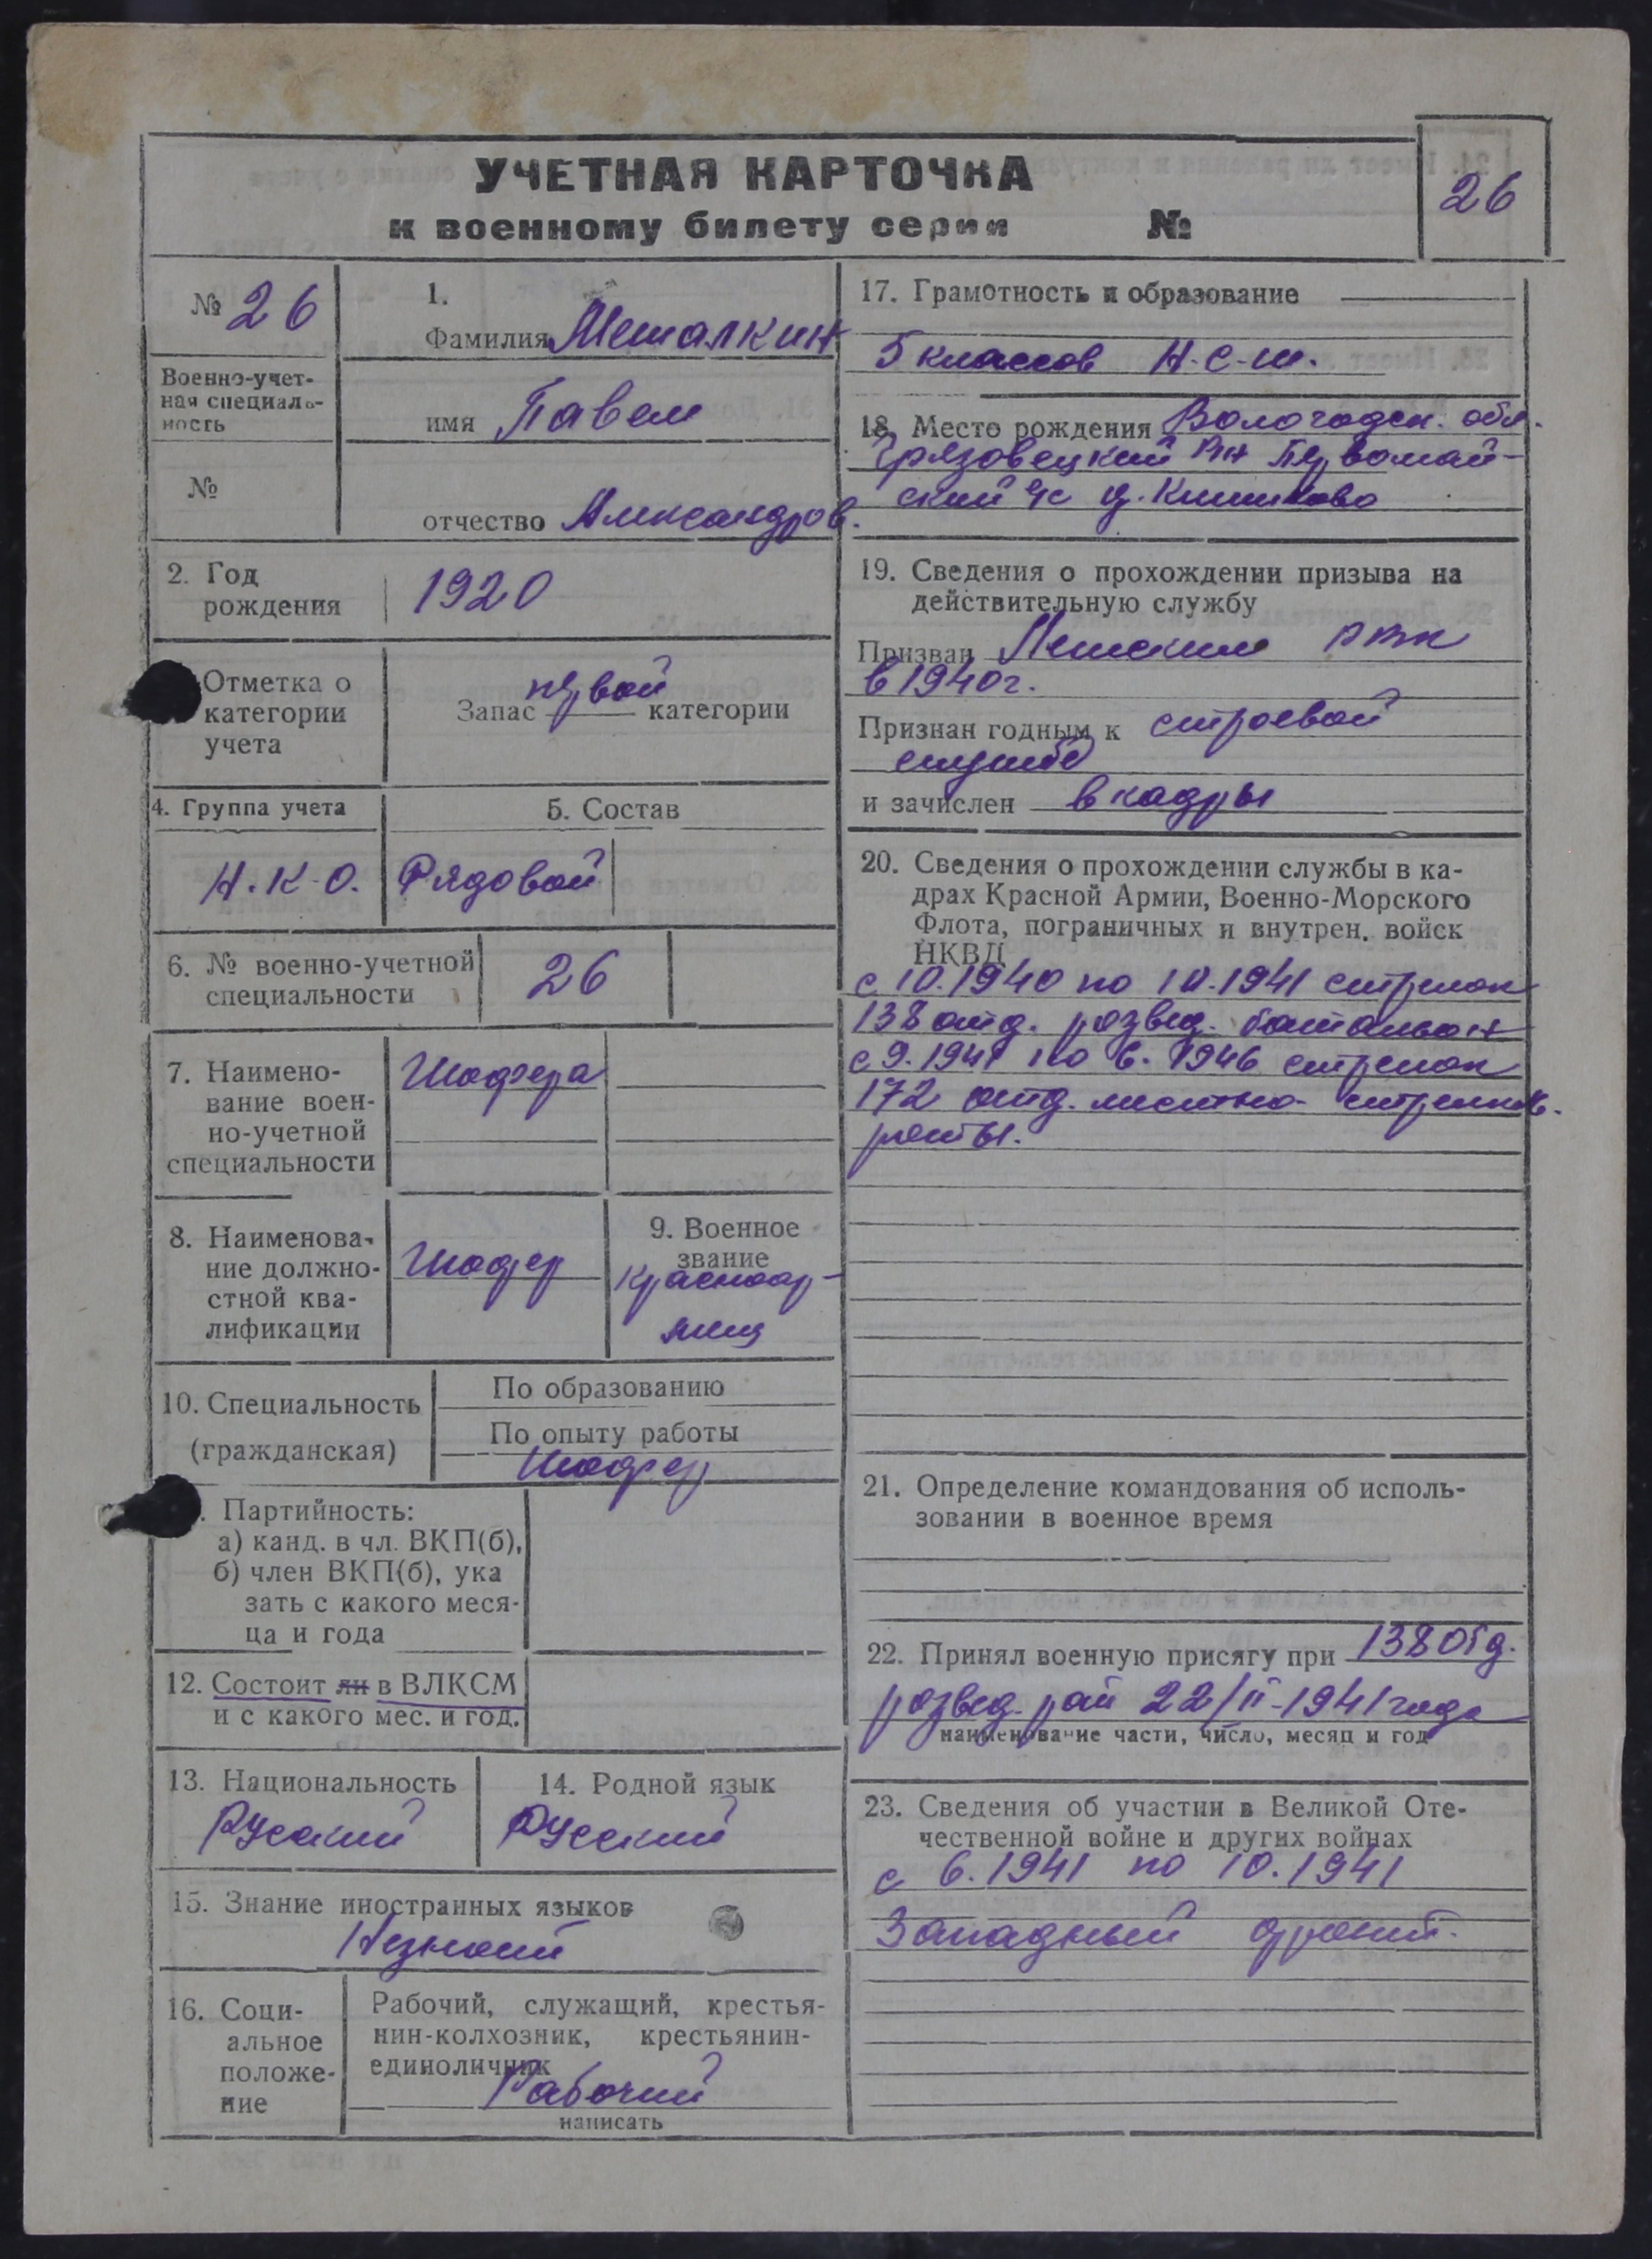 УЧЕТНАЯ КАРТОЧКА
к военному билету серии №
26
№ 26
Военно-учет-
ная специаль-
ность
№
1.
Фамилия Мешалкин
имя Павел
отчество Александров.
2. Год
рождения
1920
Отметка о
категории
учета
Запас первой категории
4. Группа учета
Н.К.О.
5. Состав
Рядовой
6. № военно-учетной
специальности
26
7. Наимено-
вание воен-
но-учетной
специальности
Шофера
8. Наименова-
ние должно-
стной ква-
лификации
Шофер
9. Военное
звание
Красноар-
меец
10. Специальность
(гражданская)
По образованию
По опыту работы
Шофер
. Партийность:
а) канд. в чл. ВКП(б),
б) член ВКП(б), ука
зать с какого меся-
ца и года
12. Состоит ли в ВЛКСМ
и с какого мес. и год.
13. Национальность
Русский
14. Родной язык
Русский
15. Знание иностранных языков
Незнает
16. Соци-
альное
положе-
ние
Рабочий, служащий, крестья-
нин-колхозник, крестьянин-
единоличник
Рабочий
написать
17. Грамотность и образование
5 классов Н.С.Ш.
18. Место рождения Вологодск. обл.
Грязовецкий рн Первомай-
ский с/с д.
19. Сведения о прохождении призыва на
действительную службу
Призван РВК
в 1940г.
Признан годным к строевой
службе
и зачислен в кадры
20. Сведения о прохождении службы в ка-
драх Красной Армии, Военно-Морского
Флота, пограничных и внутрен. войск
НКВД
с 10.1940 по 10.1941 стрелок
138 отд. розвед. батальон
с 9.1941 по 6.1946 стрелок
172 отд. местно-стрелков.
роты.
21. Определение командования об исполь-
зовании в военное время
22. Принял военную присягу при 138 отд.
розвед. 22/II-1941 года
наименование части, число, месяц и год
23. Сведения об участии в Великой Оте-
чественной войне и других войнах
с 6.1941 по 10.1941
Западный фронт.